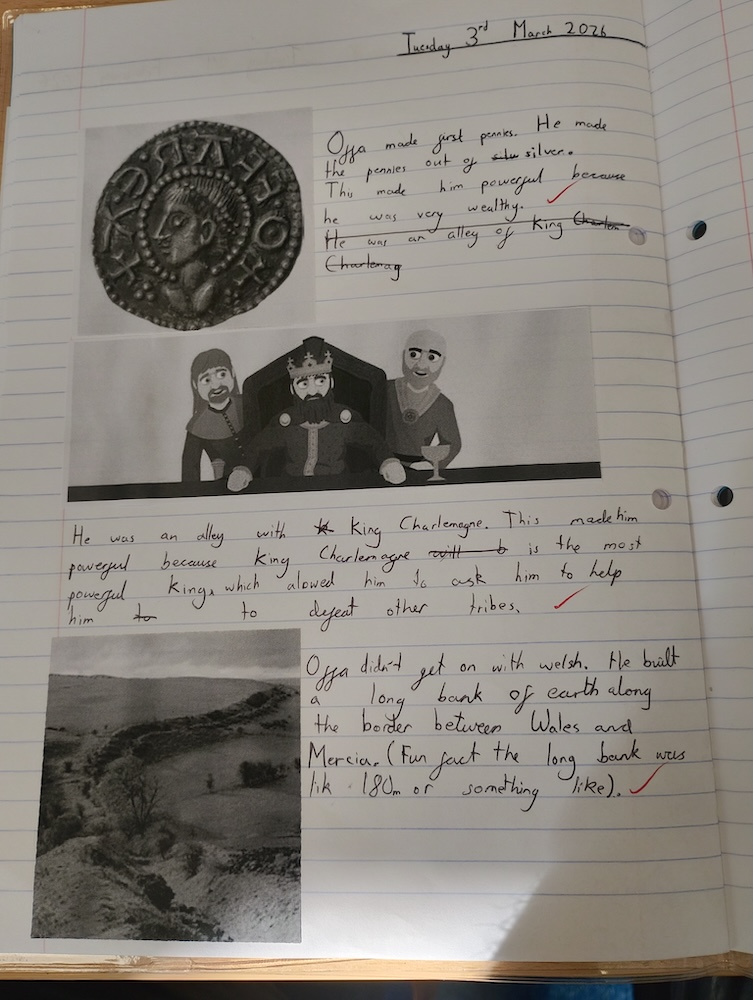 Tuesday 3rd March 2026
Offa made first pennies. He made
the pennies out of silver.
This made him powerful because
he was very wealthy.
He was an alley of King Charlem
Charlemag
He was an alley with King Charlemagne. This made him
powerful because King Charlemagne will b is the most
powerful Kings which alowed him to ask him to help
him to to defeat other tribes.
Offa didn't get on with welsh. He built
a long bank of earth along
the border between Wales and
Mercia. (Fun fact the long bank was
lik 180m or something like).